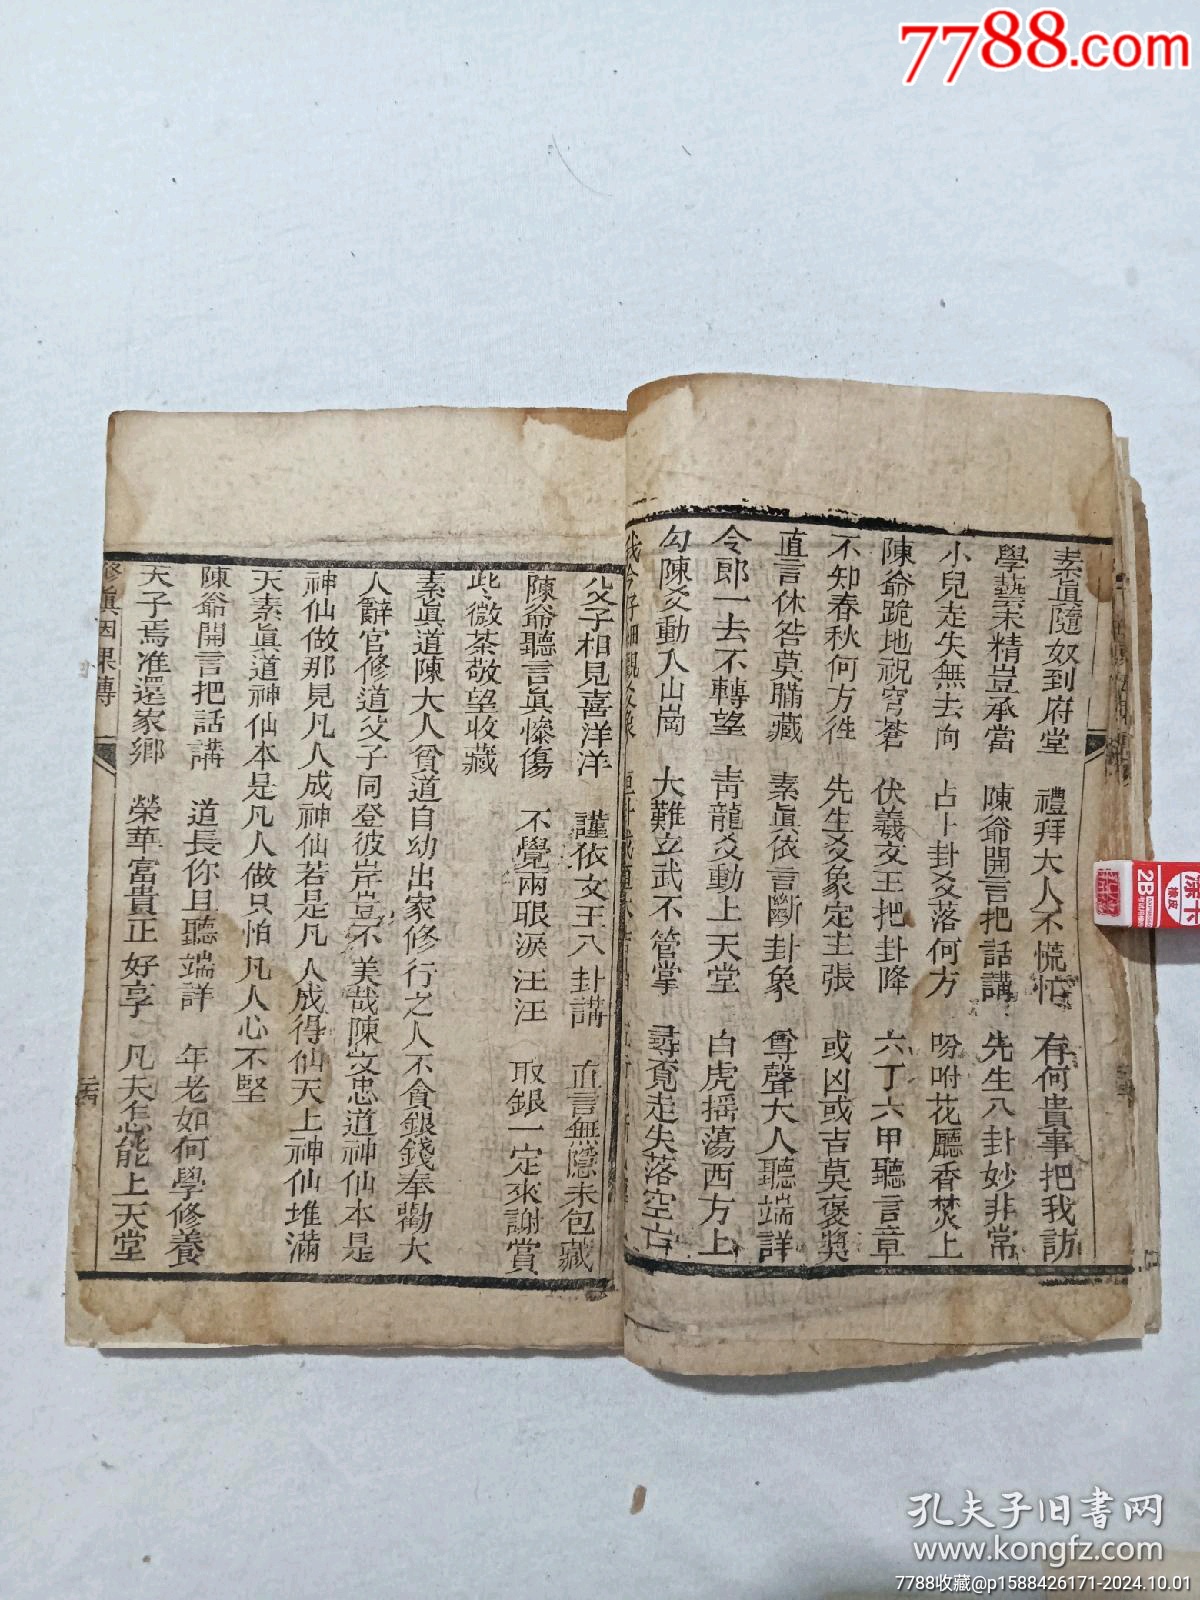 7788.com
素眞隨奴到府堂 禮拜大人不慌忙 有何貴事把我訪
學藝未精豈承當 陳爺開言把話講 先生八卦妙非常
小兒走失無去向 占卜卦爻落何方 吩咐花廳香焚上
陳爺跪地祝穹蒼 伏羲文王把卦降 六丁六甲聽言章
不知春秋何方徃 先生爻象定主張 或凶或吉莫褒獎
直言休咎莫瞞藏 素眞依言斷卦象 尊聲大人聽端詳
令郎一去不轉望 靑龍爻動上天堂 白虎揺蕩西方上
勾陳爻動入山崗 大難立武不管掌 尋覔走失落空亡
我今仔細觀爻象
父子相見喜洋洋 謹依文王八卦講 直言無隱未包藏
陳爺聽言眞慘傷 不覺兩眼淚汪汪 取銀一定來謝賞
此微茶敬望收藏
素眞道陳大人貧道自幼出家修行之人不貪銀錢奉勸大
人辭官修道父子同登彼岸豈不美哉陳文忠道神仙本是
神仙做那見凡人成神仙若是凡人成得仙天上神仙堆滿
天素眞道神仙本是凡人做只怕凡人心不堅
陳爺開言把話講 道長你且聽端詳 年老如何學修養
天子焉准還家鄉 榮華富貴正好享 凡夫怎能上天堂
修眞因果傳
2B
橡皮
孔夫子旧书网
www.kongfz.com
7788收藏@p1588426171-2024.10.01